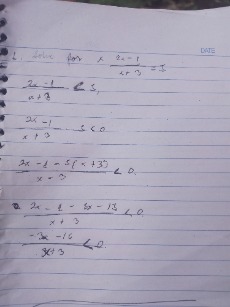 DATE
Solve for x 2x-1/x+3 = 5
2x-1/x+3 < 5,
2x-1/x+3 - 5 < 0
2x-1-5(x+3)/x-3 < 0.
2x-1-5x-15/x+3 < 0
-3x-16/x+3 < 0